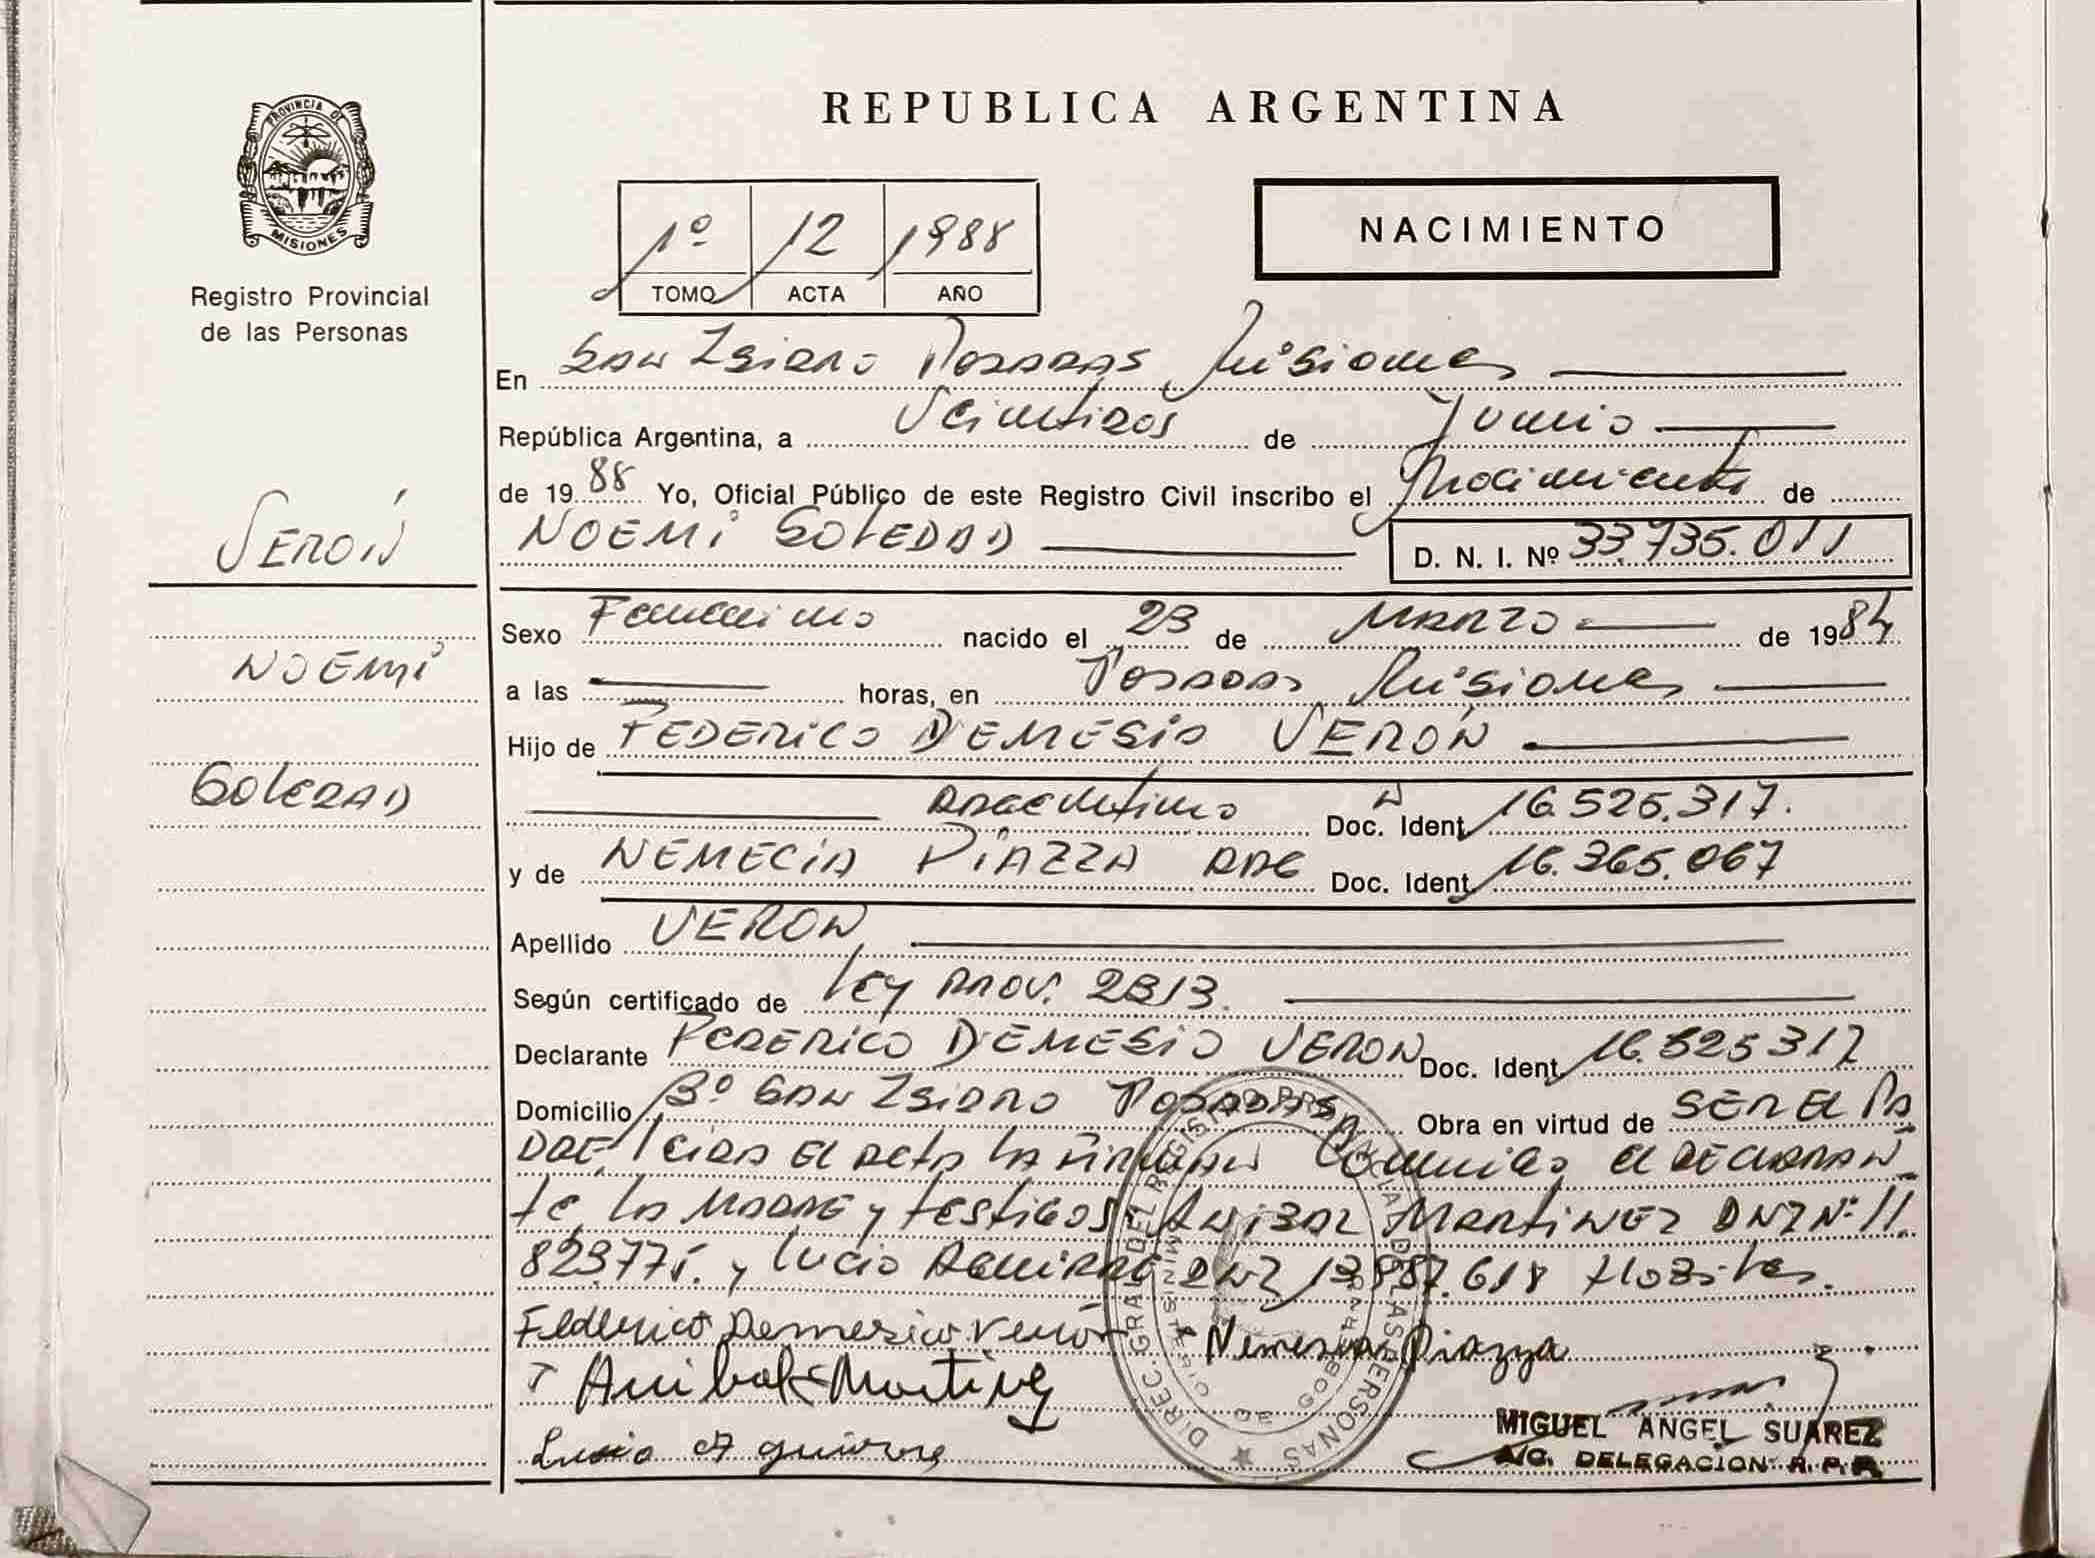 REPUBLICA ARGENTINA
PROVINCIA DE MISIONES
Registro Provincial
de las Personas
1º 12 1988
TOMO ACTA AÑO
NACIMIENTO
En San Isidro Posadas Misiones
República Argentina, a Veintidos de Junio
de 1988 Yo, Oficial Público de este Registro Civil inscribo el Nacimiento de
NOEMÍ SOLEDAD D. N. I. Nº 33.735.011
VERÓN
NOEMÍ
SOLEDAD
Sexo Femenino nacido el 23 de MARZO de 1984
a las horas, en Posadas Misiones
Hijo de FEDERICO DEMESIO VERÓN
ARGENTINO Doc. Ident. 16.525.317.
y de NEMECIA PIAZZA ARG Doc. Ident. 16.365.067
Apellido VERON
Según certificado de Ley Prov. 2313.
Declarante FEDERICO DEMESIO VERON Doc. Ident. 16.525317
Domicilio Bº San Isidro Posadas Obra en virtud de SER EL PA
DRE, leida el acta la firman conmigo el declaran
te, la madre y testigos: Anibal Martinez DNI Nº 11.
823.775. y Lucio DNI 13.887.618
Federico Demesio Verón Nemesia Piazza
Anibal Martinez
Lucio
MIGUEL ANGEL SUAREZ
A/C. DELEGACION R. P. P.
DIREC. GRAL. DEL REGISTRO PROVINCIAL DE LAS PERSONAS
MINISTERIO DE GOBIERNO